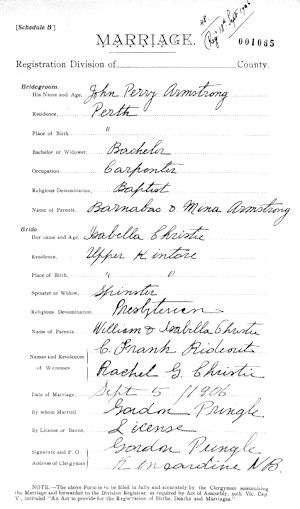 [Schedule B]
Reg. 18th Sept 1906
001085
MARRIAGE.
Registration Division of County.
Bridegroom
His Name and Age, John Perry Armstrong
Residence, Perth
Place of Birth "
Bachelor or Widower, Bachelor
Occupation, Carpenter
Religious Denomination, Baptist
Name of Parents, Barnabas & Mina Armstrong
Bride
Her name and Age, Isabella Christie
Residence, Upper Kintore
Place of Birth " "
Spinster or Widow, Spinster
Religious Denomination, Presbyterian
Name of Parents, William & Isabella Christie
Names and Residences of Witnesses
C. Frank Rideout
Rachel G. Christie
Date of Marriage, Sept 5 / 1906
By whom Married, Gordon Pringle
By License or Banns, License
Signature and P. O. Gordon Pringle
Address of Clergyman, Kincardine NB.
NOTE.—The above Form is to be filled in fully and accurately by the Clergyman solemnizing
the Marriage and forwarded to the Division Registrar, as required by Act of Assembly, 50th Vic. Cap.
V., intituled "An Act to provide for the Registration of Births, Deaths and Marriages."